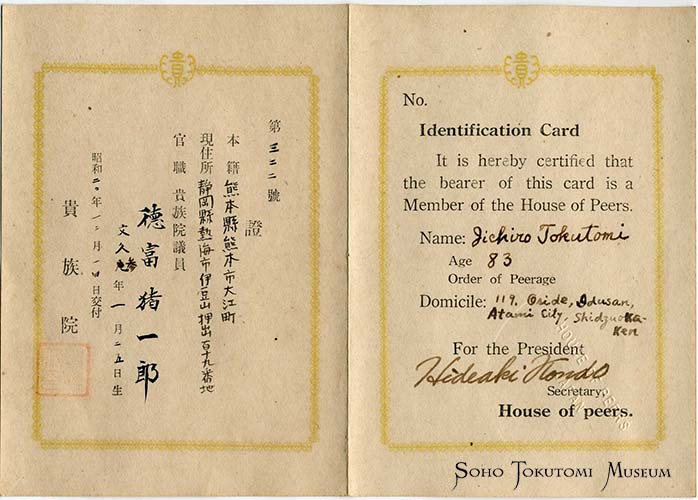 第三二二號
證
本籍 熊本縣熊本市大江町
現住所 靜岡縣熱海市伊豆山押出百十九番地
官職 貴族院議員
德富猪一郎
文久參年一月二五日生
昭和二〇年一二月一四日交付
貴族院
貴
貴
No.
Identification Card
It is hereby certified that
the bearer of this card is a
Member of the House of Peers.
Name: Iichiro Tokutomi
Age 83
Order of Peerage
Domicile: 119, Oside, Idusan,
Atami City, Shidzuoka-
Ken
For the President
Hideaki Kondo
Secretary,
House of peers.
HOUSE OF PEERS
SOHO TOKUTOMI MUSEUM